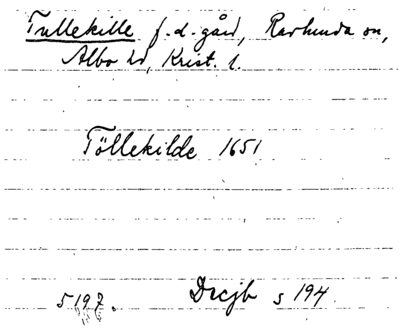 Tullekille f.d. gård, Ravlunda sn,
Albo hd, Krist. l.
Töllekilde 1651
5197. Drejb s 194.